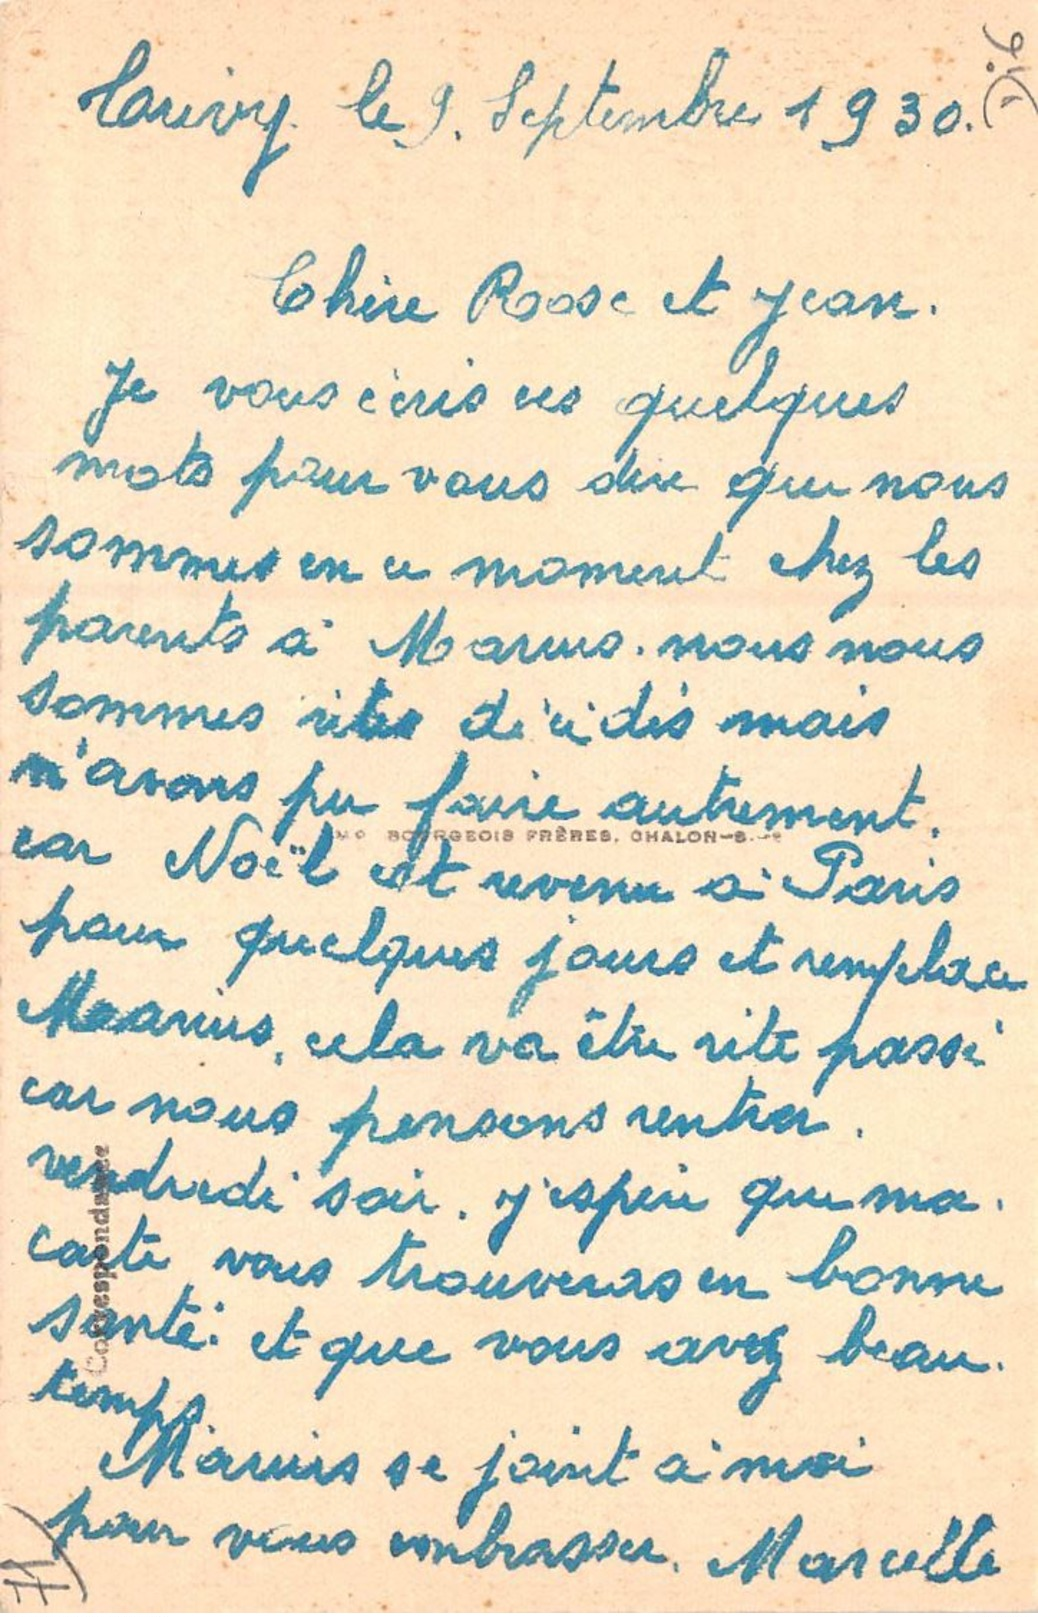 le 9. Septembre 1930.
Chère Rose et Jean.
Je vous écris ces quelques
mots pour vous dire que nous
sommes en ce moment chez les
parents à Marius. nous nous
sommes vites décidés mais
n'avons pu faire autrement.
BOURGEOIS FRÈRES, CHALON-S.-S
car Noël est revenu à Paris
pour quelques jours et remplace
Marius, cela va être vite passé
car nous pensons rentrer.
vendredi soir. j'espère que ma.
carte vous trouveras en bonne
santé. et que vous avez beau.
temps
Marius se joint à moi
pour vous embrasser. Marcelle
Correspondance
71)